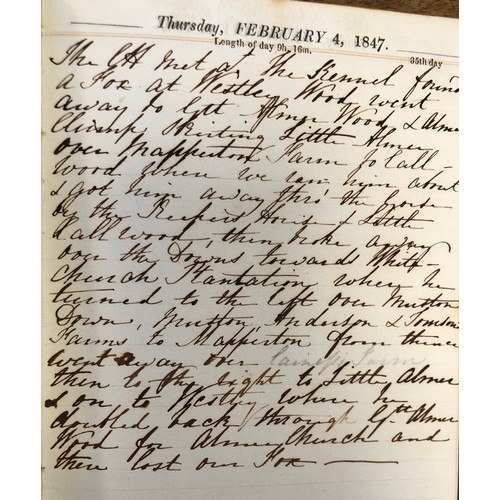 Thursday, FEBRUARY 4, 1847.
Length of day 9h. 16m. 35th day
The CH met at The Kennel found
a Fox at Westley Wood went
away to Gtt. Almer Wood & Almer
Clump, Skirting Little Almer
over Mapperton Farm to Call-
wood where we ran him about
& got him away thro' the Gorse
by the Keepers House & Little
Call wood, then broke away
over the Downs towards Whit
church Plantation where he
turned to the left over Mutton
Down, Mutton, Anderson & Tomson
Farms to Mapperton from thence
went away over Farm
then to the right to Little Almer
& on to Westley where he
doubled back through Gtt Almer
Wood for Almer Church and
there lost our Fox —